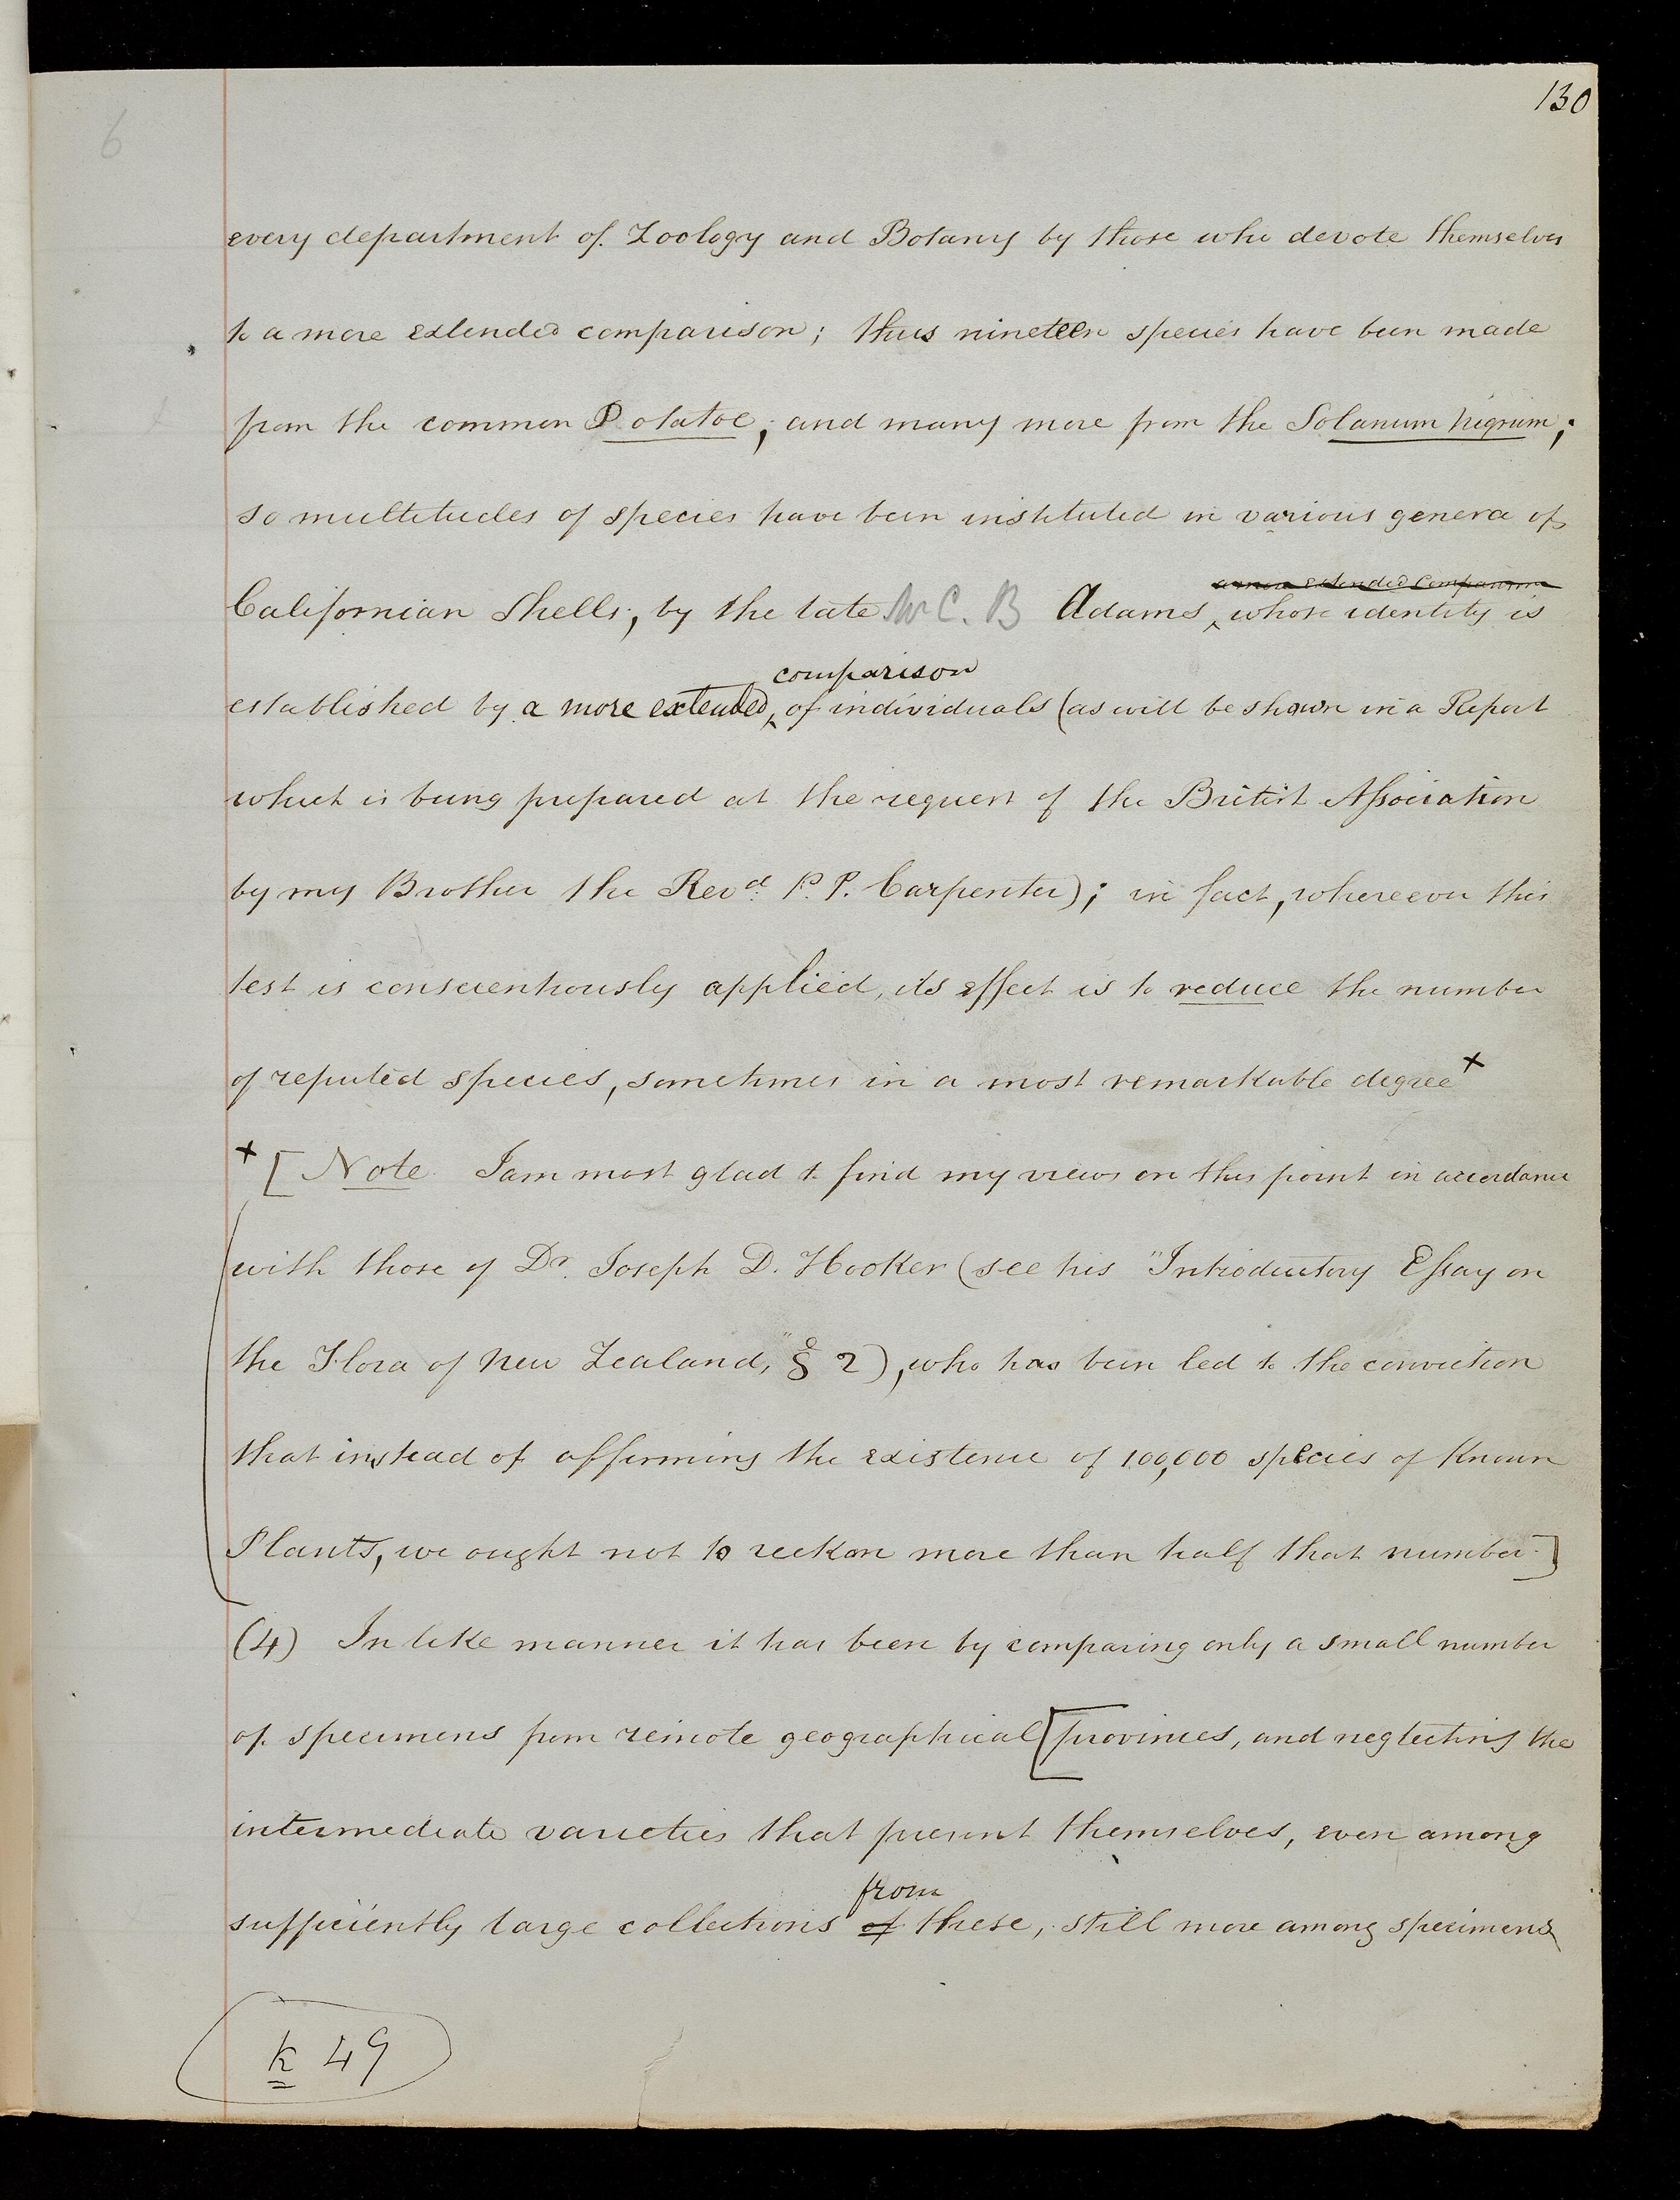 130
6
every department of Zoology and Botany by those who devote themselves
to a more extended comparison; thus nineteen species have been made
from the common Potatoe; and many more from the Solanum nigrum;
so multitudes of species have been instituted in various genera of
a more extended comparison
Californian Shells, by the late Mr C. B Adams, whose identity is
comparison
established by a more extended of individuals (as will be shown in a Report
which is being prepared at the request of the British Association
by my Brother the Revd. P. P. Carpenter); in fact, wherever this
test is conscientiously applied, its effect is to reduce the number
of reputed species, sometimes in a most remarkable degree x
x [Note. I am most glad to find my views on this point in accordance
with those of Dr. Joseph D. Hooker (see his "Introductory Essay on
the Flora of New Zealand," § 2), who has been led to the conviction
that instead of affirming the existence of 100,000 species of Known
Plants, we ought not to reckon more than half that number.]
(4) In like manner it has been by comparing only a small number
of specimens from remote geographical [provinces, and neglecting the
intermediate varieties that present themselves, even among
from
sufficiently large collections of these, still more among specimens
k 49